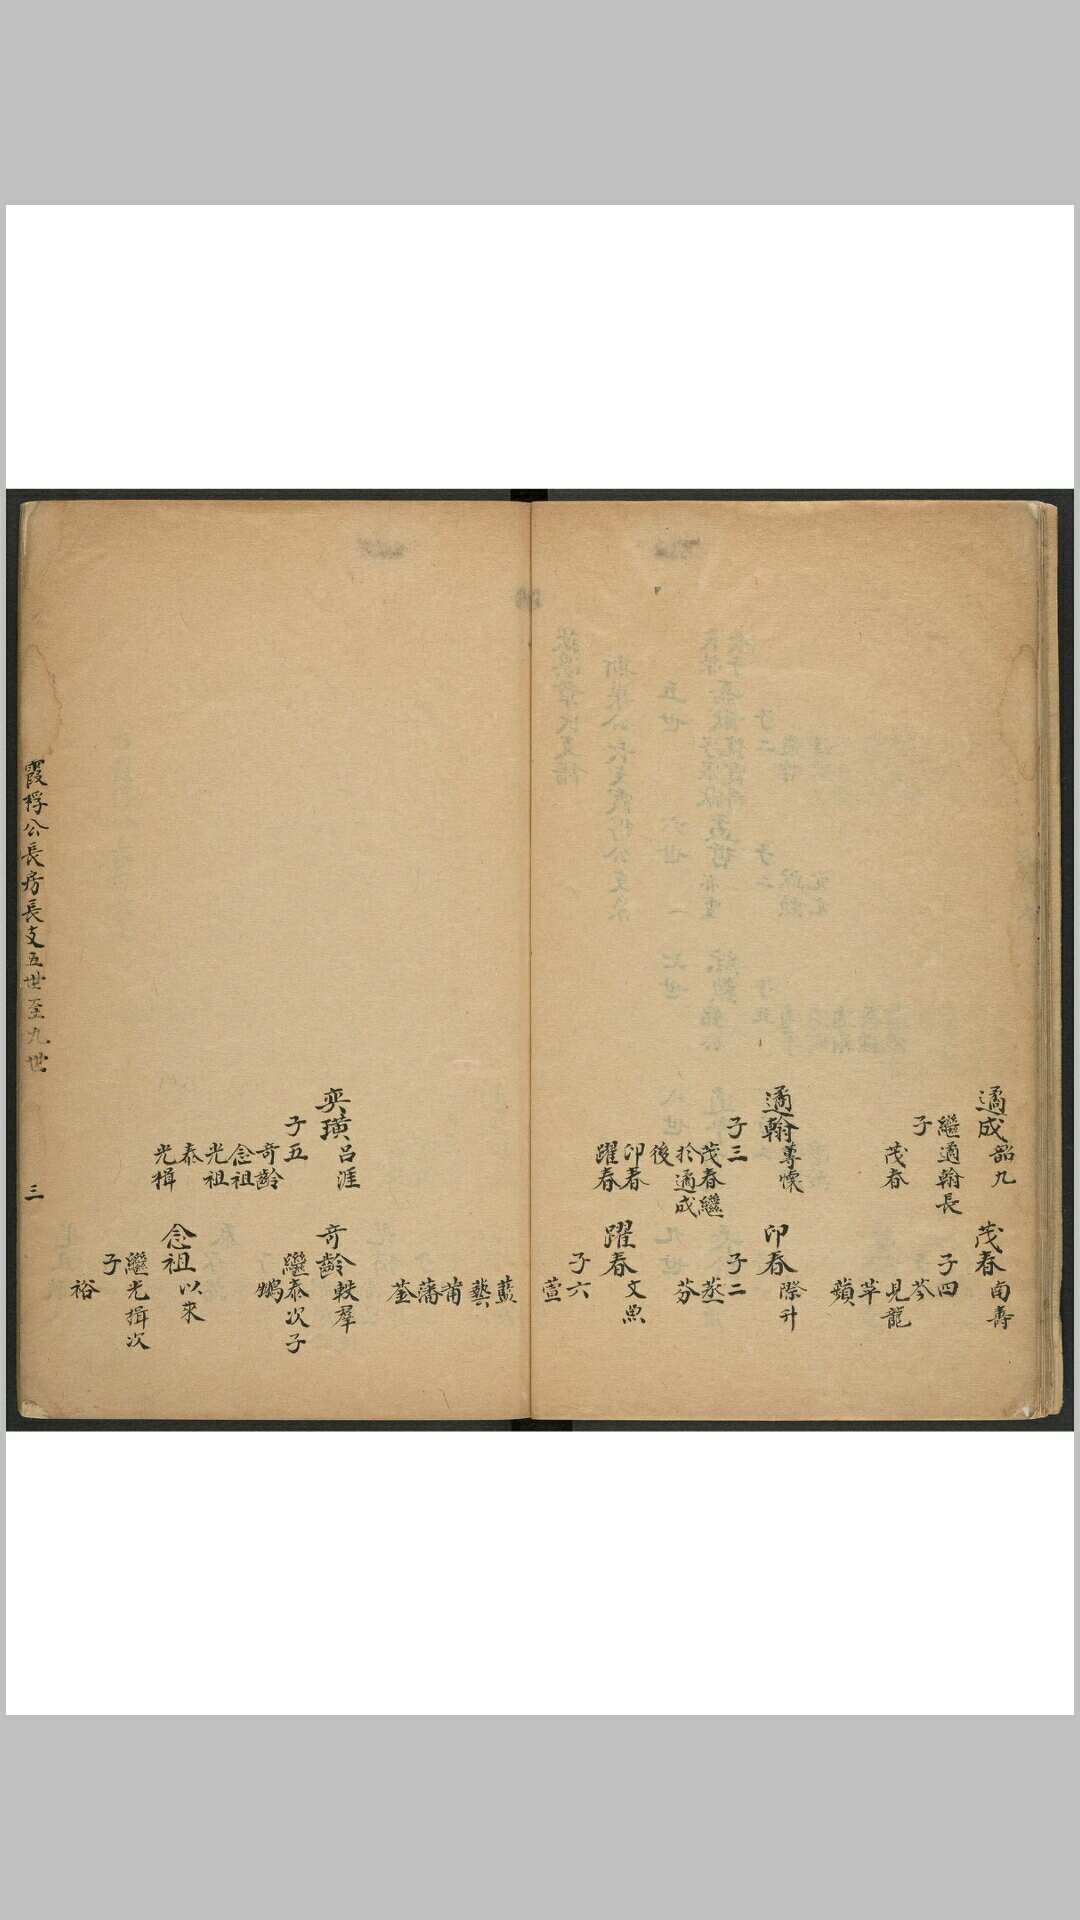 遹成韶九
繼遹翰長
子
茂春
茂春南壽
子四
芩
見龍
苹
蘋
遹翰蓴懷
子三
茂春繼
於遹成
後
印春
躍春
印春際升
子二
蒸
芬
躍春文奧
子六
萱
藍
藝
莆
藩
荃
奕璜呂涯
子五
奇齡
念祖
光祖
泰
光楫
奇齡軼羣
繼泰次子
鵷
念祖以來
繼光楫次
子
裕
霞桴公長房長支五世至九世
三